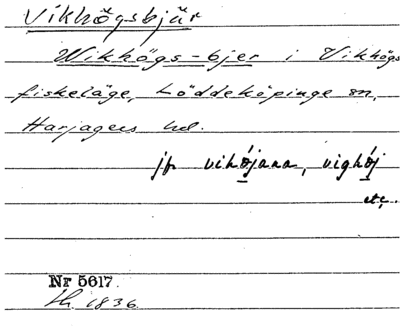 Vikhögsbjär
Wikhögs-bjer i Vikhögs
fiskeläge, Löddeköpinge sn,
Harjagers hd.
jfr vihöjana, vighöj
etc.
Nr 5617.
th. 1836